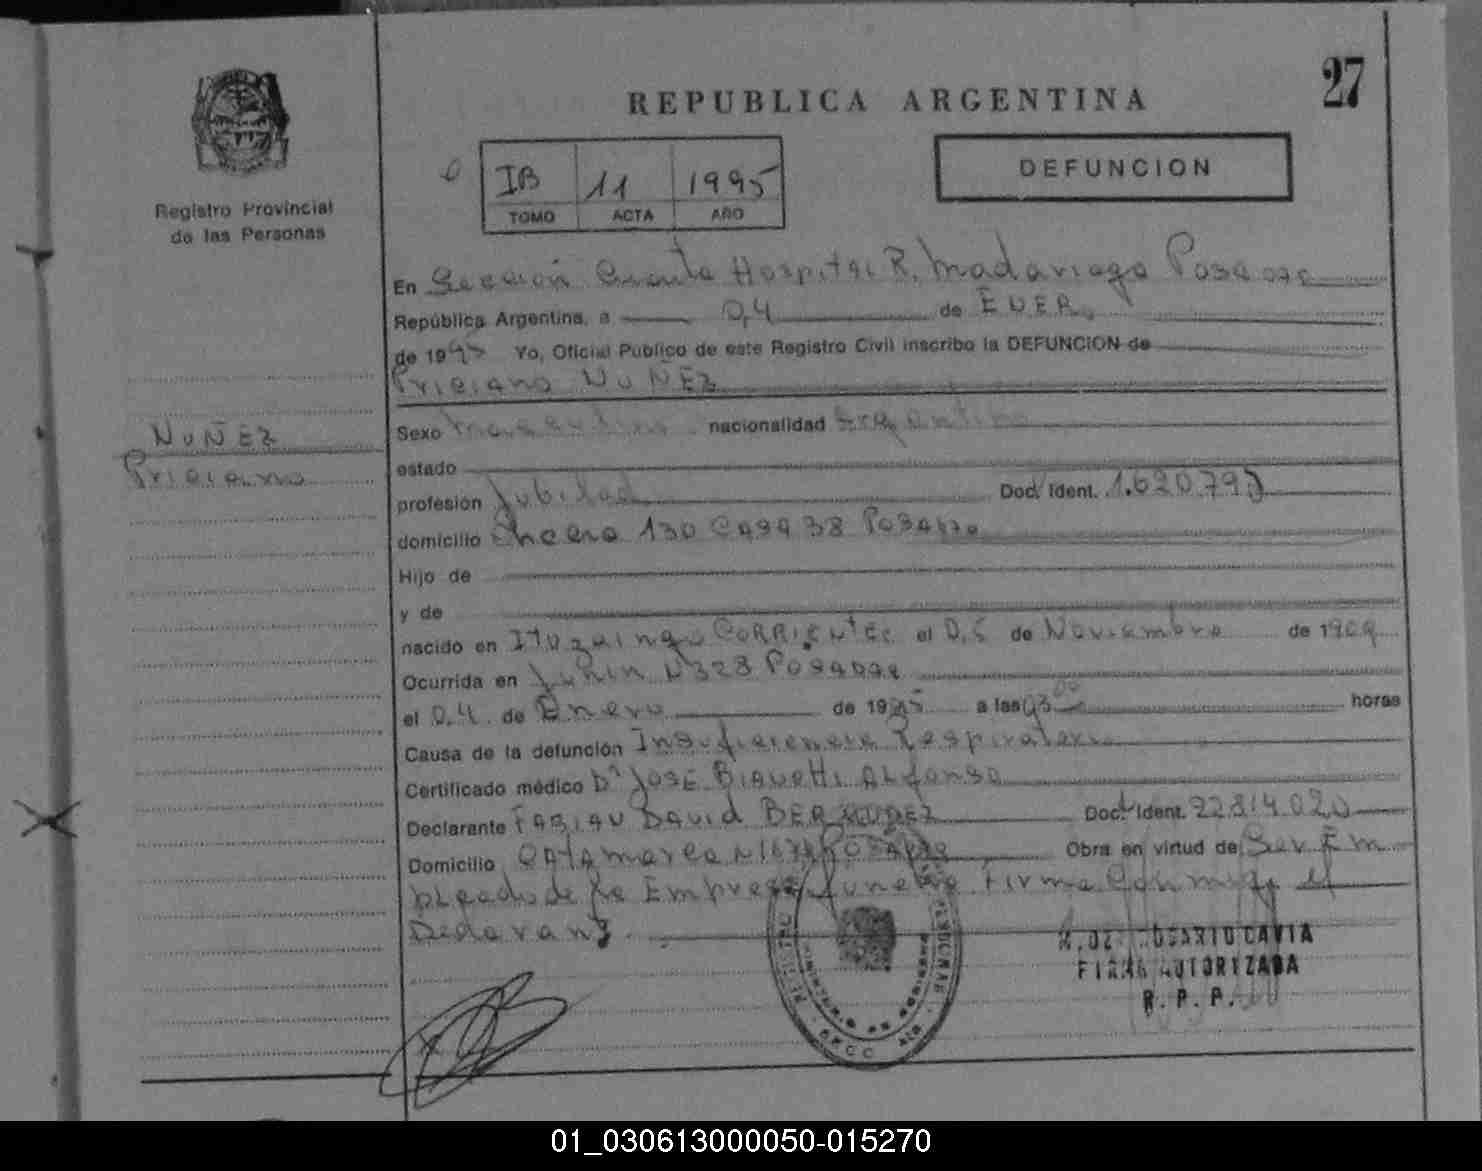 27
REPUBLICA ARGENTINA
DEFUNCION
IB 11 1995
TOMO ACTA AÑO
Registro Provincial
de las Personas
En Sección Hospital R. Madariaga Posadas
República Argentina, a 04 de ENER.
de 1995 Yo, Oficial Público de este Registro Civil inscribo la DEFUNCION de
Prisiano NUÑEZ
NUÑEZ
Prisiano
Sexo Masculino nacionalidad Argentino
estado
profesión Jubilad Doc. Ident. 1.620.797
domicilio Chacra 130 CASA 38 Posadas
Hijo de
y de
nacido en Ituzaingo CORRIENTES el 05 de Noviembre de 1909
Ocurrida en Junin N 328 Posadas
el 04 de Enero de 1995 a las 03 00 horas
Causa de la defunción Insuficiencia Respiratoria
Certificado médico Dr JOSE Bianetti Alfonso
Declarante FABIAN DAVID BERMUDEZ Doc. Ident. 22.814.020
Domicilio Catamarca N Posadas Obra en virtud de Ser Em
pleado de la Empresa funebre Firma Conmigo el
Declarante.
ROSARIO CAVIA
FIRMA AUTORIZADA
R.P.P.
01_030613000050-015270